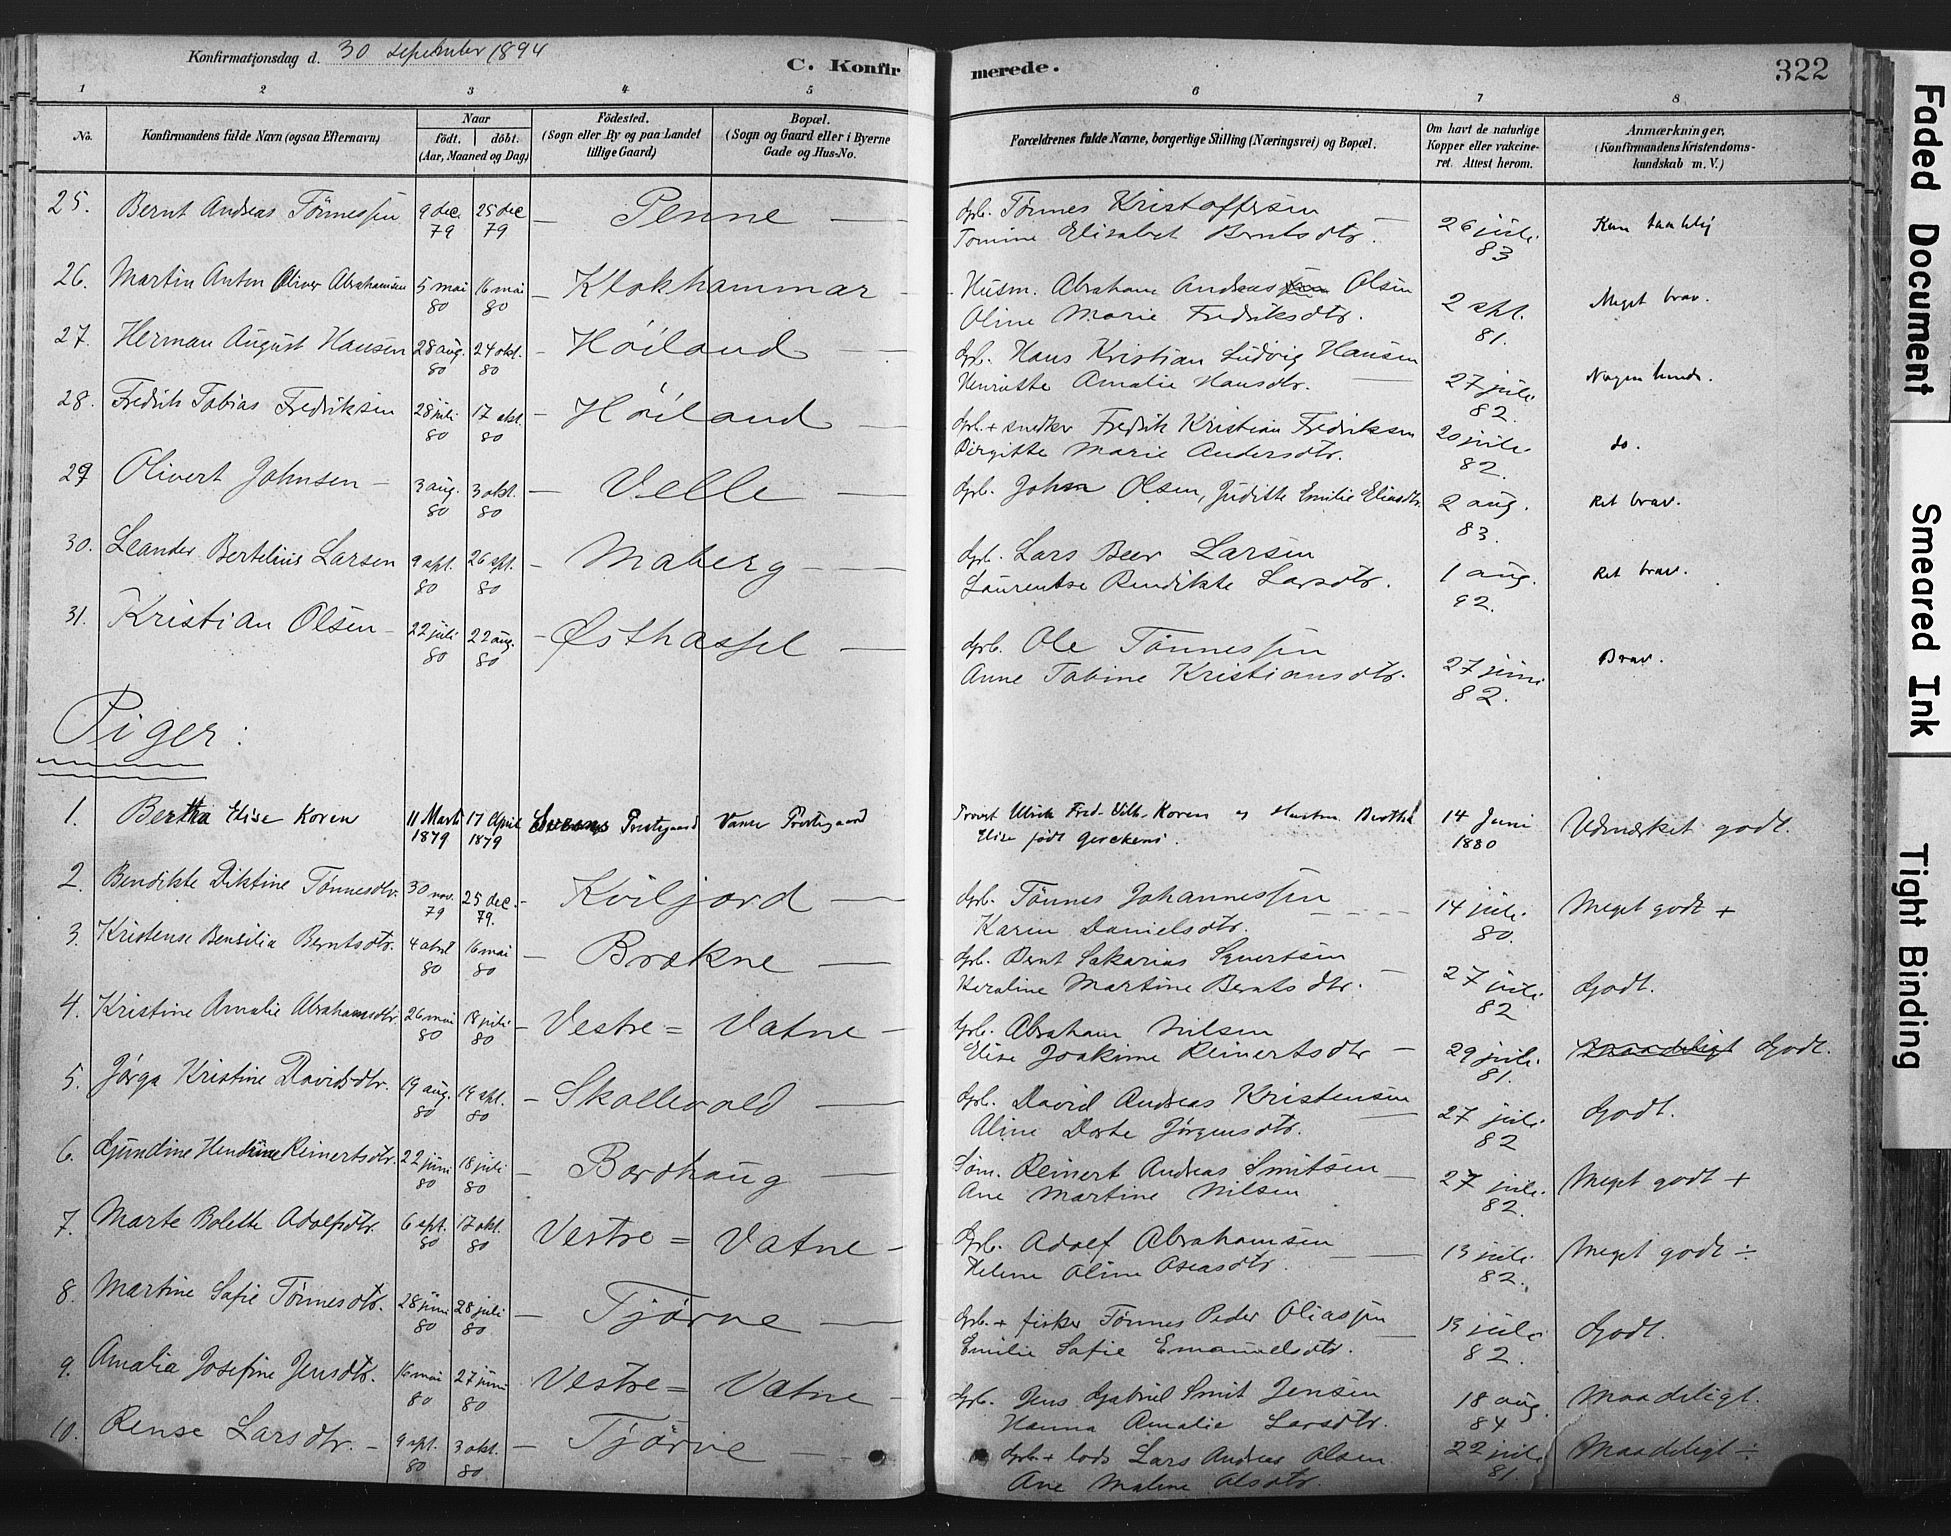 Konfirmationsdag d. 30 september 1894
C. Konfirmerede.
322
1 2 3 4 5 6 7 8
No.
Konfirmandens fulde Navn (ogsaa Efternavn)
Naar
født. døbt.
(Aar, Maaned og Dag)
Fødested.
(Sogn eller By og paa Landet
tillige Gaard)
Bopæl.
(Sogn og Gaard eller i Byerne
Gade og Hus-No.
Forældrenes fulde Navne, borgerlige Stilling (Næringsvei) og Bopæl.
Om havt de naturlige
Kopper eller vakcine-
ret. Attest herom.
Anmærkninger,
(Konfirmandens Kristendoms-
kundskab m. V.)
25. Bernt Andreas Tönnessen 9 dec. 79 25 dec 79 – Penne — Grb. Tönnes Kristoffersen
Tomine Elisabet Berntsdtr. 26 juli 83
26. Martin Anton Oliver Abrahamsen 5 mai 80 16 mai 80 – Klokhammar – Husm. Abraham Andreas Olsen
Oline Marie Fredriksdtr. 2 spt. 81. Meget brav.
27. Herman August Hansen 28 aug. 80 24 okt. 80 – Höiland — Grb. Hans Kristian Ludvig Hansen
Henriette Amalie Hansdtr. 27 juli 82
28. Fredrik Tobias Fredriksen 28 juli 80 17 okt. 80 – Höiland — Grb. + snedker Fredrik Kristian Fredriksen
Birgitte Marie Andersdtr. 20 juli 82. do.
29 Olivert Johnsen – 3 aug. 80 3 okt. 80 – Velle — Grb. John Olsen, Juditte Emilie Eliasdtr. 2 aug. 83. Ret brav.
30. Leander Bertelius Larsen 9 spt. 80 26 spt. 80 – Maberg — Grb. Lars Beer Larsen
Laurentse Bendikte Larsdtr. 1 aug. 92. Ret brav.
31. Kristian Olsen – 22 juli 80 22 aug. 80 – Østhassel — Grb. Ole Tönnessen
Anne Tobine Kristiansdtr. 27 juni 82. Brav.
Piger:
1. Bertha Elise Koren 11 Marts 1879 17 April 1879 Prestegaard Vanse Prestegaard Provst Ulrik Fred. Vilh. Koren og Hustru
Elise født Gerckens. 14 Juni 1880 Udmærket godt.
2. Bendikte Diktine Tönnesdtr. 30 nov. 79 25 dec. 79. – Kviljord — Grb. Tönnes Johannessen
Karen Danielsdtr. 14 juli 80. Meget godt +
3. Kristense Bensilia Berntsdtr. 4 abril 80 16 mai 80 – Brækne — Grb. Bernt Sakarias Syvertsen
Martine Berntsdtr. 27 juli 82 Godt.
4. Kristine Amalie Abrahamsdtr. 26 mai 80 18 juli 80 – Vestre = Vatne – Grb. Abraham Nilsen
Elise Joakime Reinertsdtr – 29 juli 81. Maadeligt Godt.
5. Jörga Kristine Davidsdtr. 19 aug. 80 19 spt. 80 – Skollevold — Grb. David Andreas Kristensen
Aline Dorte Jörgensdtr. 27 juli 82 Godt.
6. Gjundine Hendrine Reinertsdtr. 22 juni 80 18 juli 80 – Bordhaug — Søm. Reinert Andreas Smitsen
Ane Martine Nilsen 27 juli 82. Meget godt +
7. Marte Bolette Adolfsdtr. 6 spt. 80 17 okt. 80 Vestre = Vatne – Grb. Adolf Abrahamsen
Helene Oline Oseasdtr. 13 juli 82. Meget godt ÷
8. Martine Sofie Tönnesdtr. 28 juni 80 28 juli 80. – Tjørve — Grb. + fisker Tönnes Peder Oliassen
Emilie Sofie Emanuelsdtr. 13 juli 82. Godt.
9. Amalia Josefine Jensdtr. 16 mai 80 27 juni 80 Vestre = Vatne – Grb. Jens Gabriel Smit Jensen
Hanna Amalie Larsdtr. 18 aug. 84 Maadeligt.
10. Rense Larsdtr. – 9 spt. 80 3 okt. 80 – Tjørve — Grb. + lods Lars Andreas Olsen
Ane Malene Olsdtr. 22 juli 81. Maadeligt ÷
Faded Document
Smeared Ink
Tight Binding